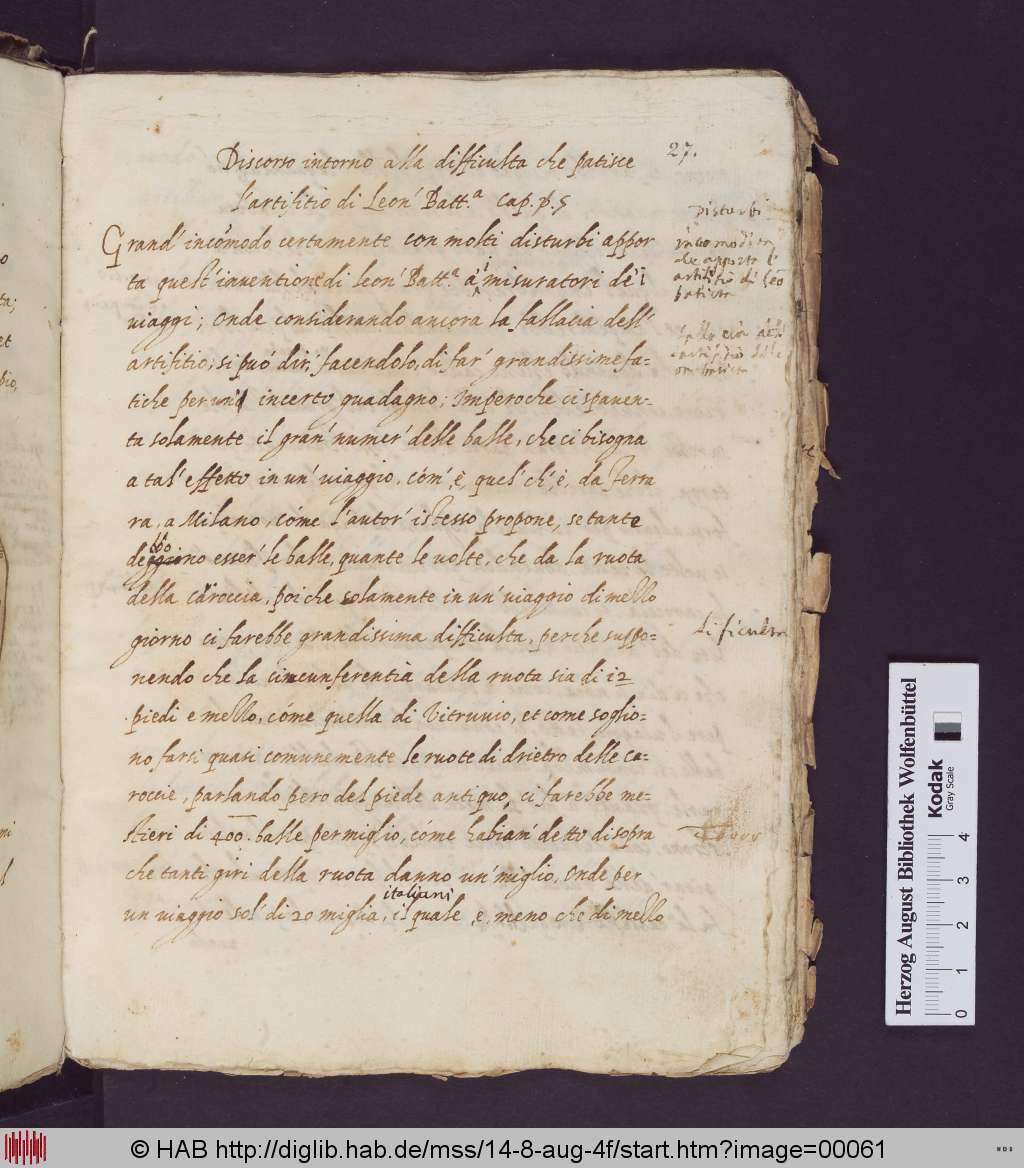 27.
Discorso intorno alla difficulta che patisce
l'artifitio di Leon' Batt.a Cap. p. 5
Grand' incómodo certamente con molti disturbi appor
ta quest' inventione di Leon' Batt.a a' i misuratori de' i
viaggi; Onde considerando ancora la fallacia dell'
artifitio; si può dir', facendolo, di far' grandissime fa-
tiche per un' incerto guadagno; Imperoche ci spaven-
ta solamente il gran' numer' delle balle, che ci bisogna
a tal' effetto in un' viaggio, cóm', è, quel' ch', è, da Ferra
ra, a Milano, cóme l'autor' istesso propone, se tante
debbono esser' le balle, quante le volte, che da la ruota
della caroccia, poi che solamente in un' viaggio di mezzo
giorno ci sarebbe grandissima difficulta, perche suppo-
nendo che la circunferentia della ruota sia di 12
piedi e mezzo, cóme quella di Vitruvio, et come soglio-
no farsi quasi comunemente le ruote di drietro delle ca-
roccie, parlando pero del piede antiquo, ci sarebbe me-
stieri di 400. balle per miglio, cóme habian' detto di sopra
che tanti giri della ruota danno un' miglio, Onde per
italiani
un viaggio sol' di 20 miglia, il quale, e, meno che di mezzo
Disturbi
incomodi
che apporta l'
artifitio di Leo
batista
fallacia dell'
artifitio
batista
dificulta
Herzog August Bibliothek Wolfenbüttel
Kodak
Gray Scale
0 1 2 3 4
© HAB http://diglib.hab.de/mss/14-8-aug-4f/start.htm?image=00061